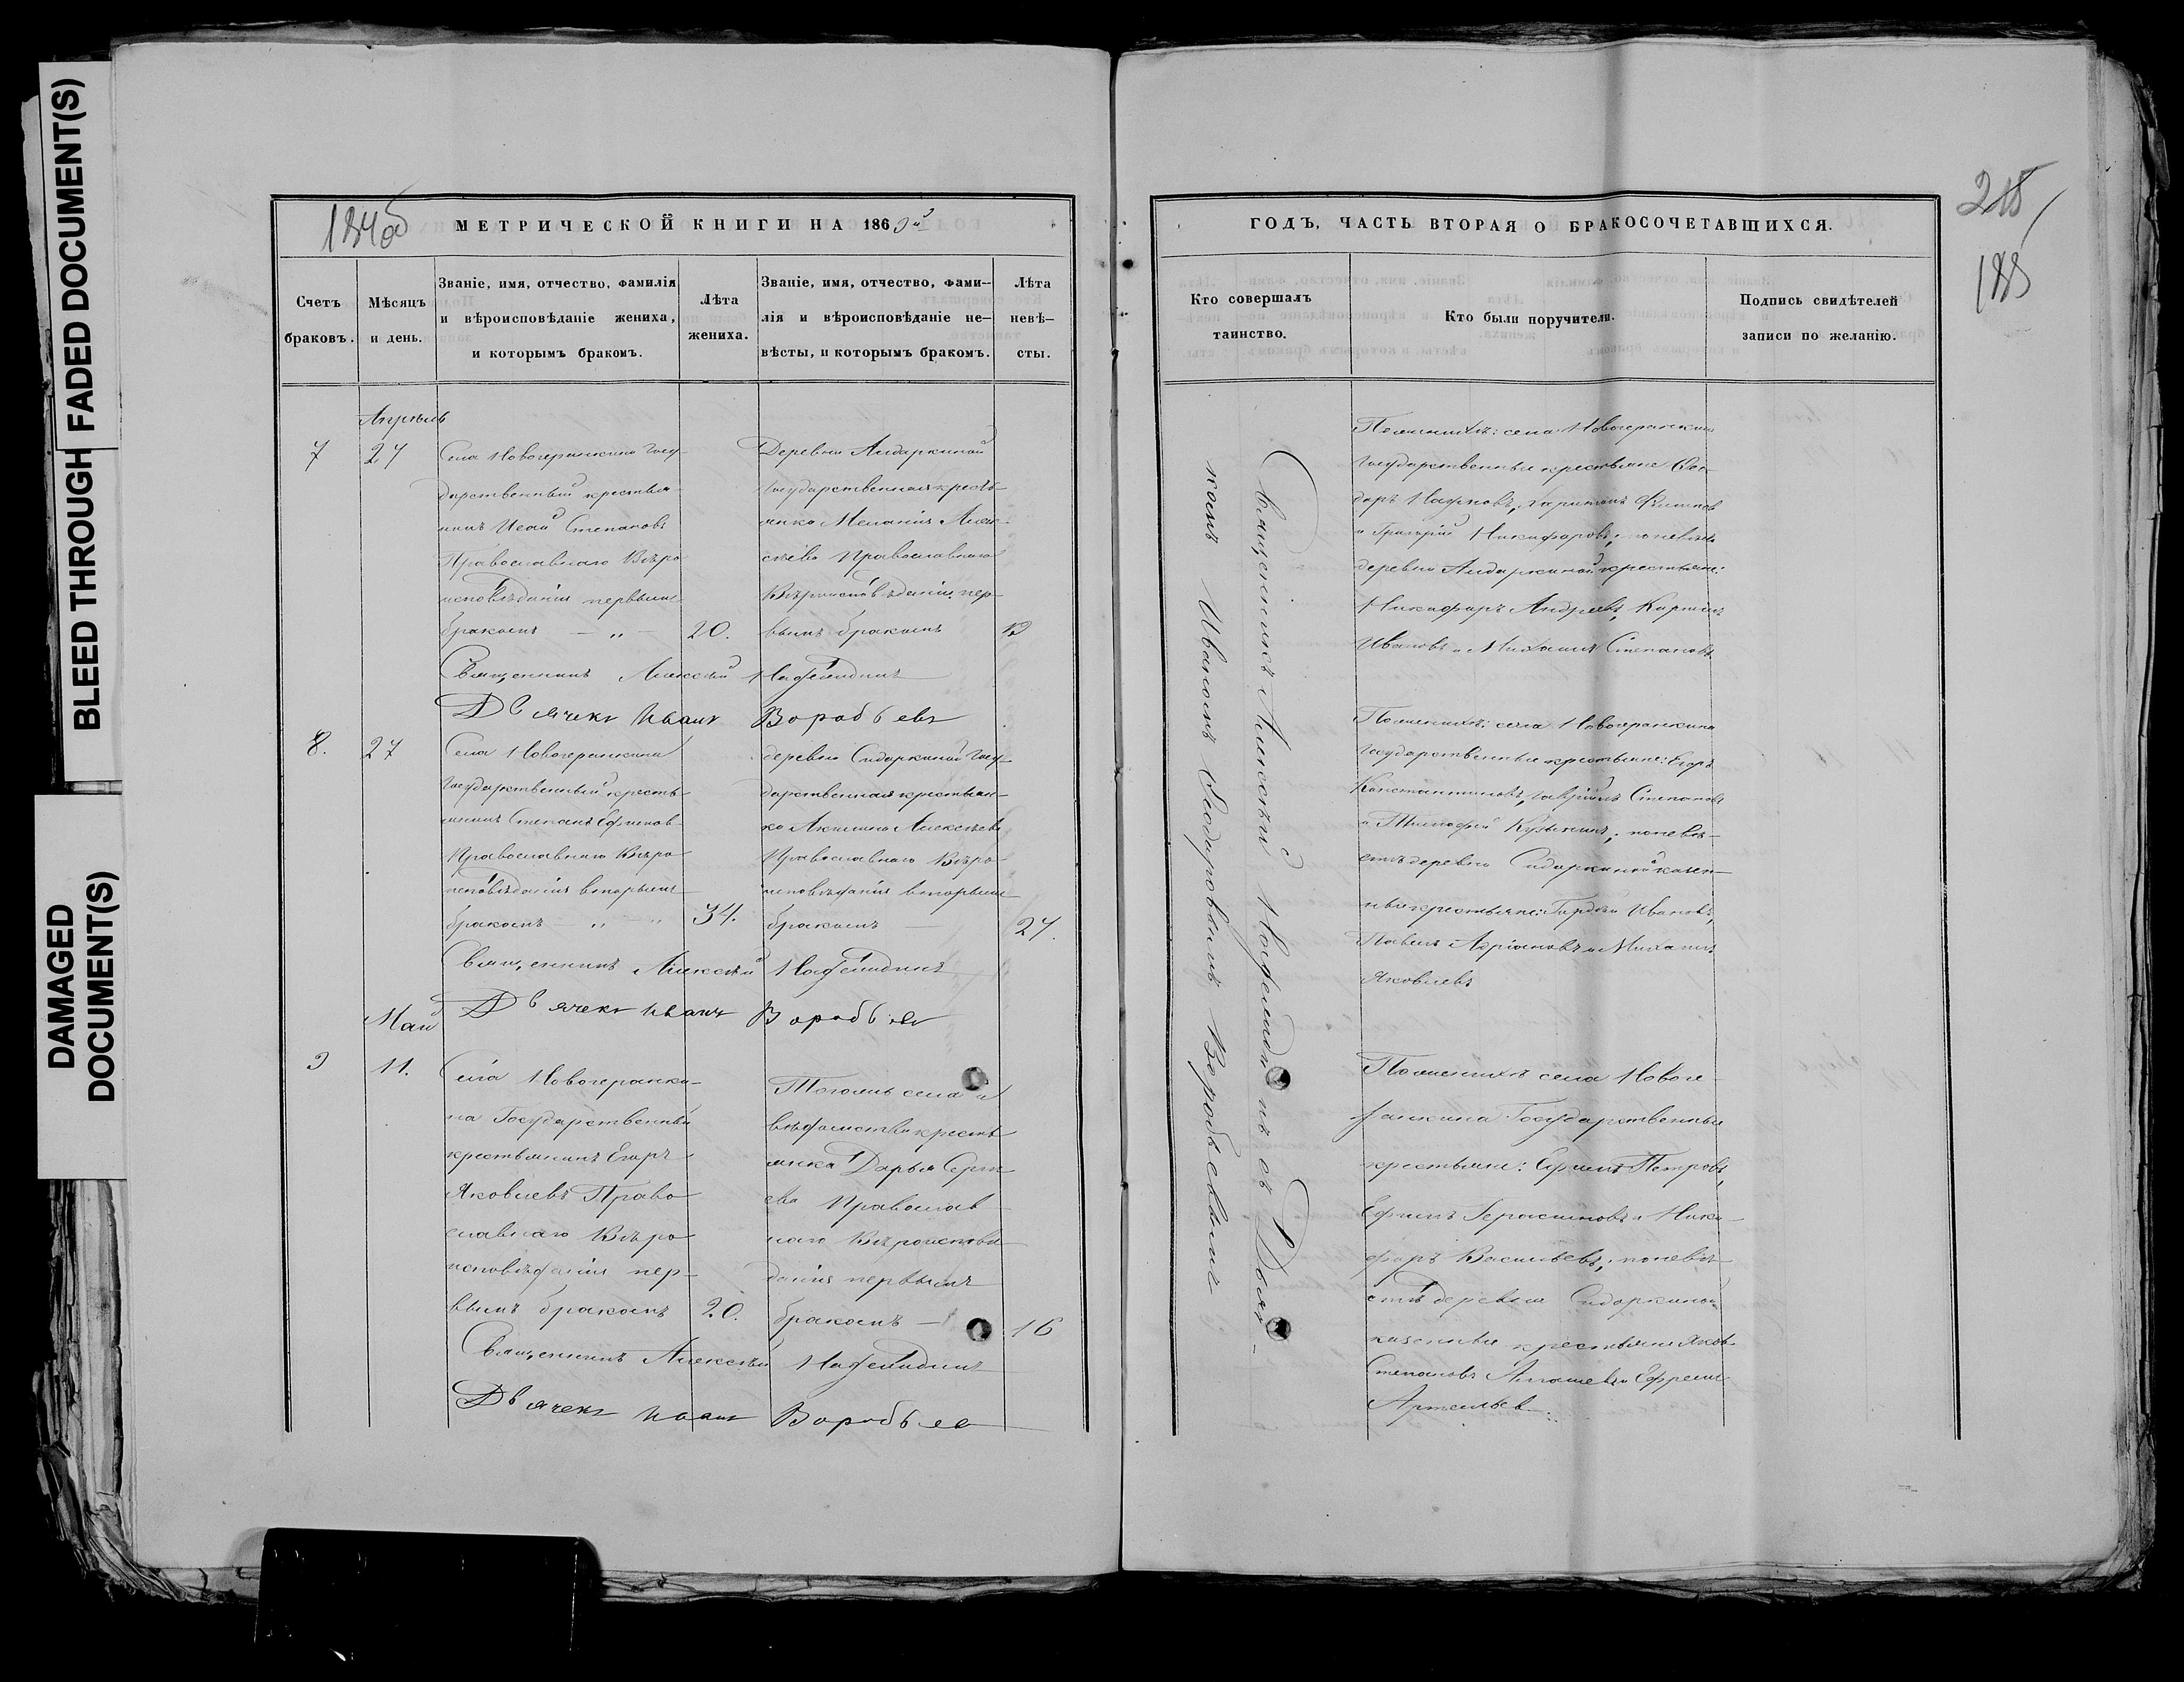 BLEED THROUGH
FADED DOCUMENT(S)
DAMAGED
DOCUMENT(S)
МЕТРИЧЕСКОЙ КНИГИ НА 1869й
Счетъ
браковъ.
Мѣсяцъ
и день.
Званіе, имя, отчество, фамилія
и вѣроисповѣданіе жениха,
и которымъ бракомъ.
Лѣта
жениха.
Званіе, имя, отчество, фами-
лія и вѣроисповѣданіе не-
вѣсты, и которымъ бракомъ.
Лѣта
невѣ-
сты.
Апрѣль
7
27
Села Новочеранкино Госу-
дарственный крестья-
нинъ Исай Степановъ
Православнаго Вѣро
исповѣданія первымъ
бракомъ
20.
Деревни Аидаркиной
Государственная кресть-
янка Меланія Алек-
сѣева Православнаго
Вѣроисповѣданія пер-
вымъ бракомъ
Священникъ Алексѣй
Дьячекъ Иванъ Воробьевъ
8.
27
Села Новочеранкина
Государственный кресть-
янинъ Степанъ Ефимов
Православнаго Вѣро
исповѣданія вторымъ
бракомъ
34.
деревни Сидаркиной Госу-
дарственная крестьян-
ка Акилина Алексѣева
Православнаго Вѣро
исповѣданія вторымъ
бракомъ
27.
Священникъ Алексѣй
Дьячекъ Иванъ Воробьев
Май
9
11.
Села Новочеранки-
на Государственный
крестьянинъ Егоръ
Яковлевъ Право
славнаго Вѣро
исповѣданія пер-
вымъ бракомъ
20.
Тогожъ села и
вѣдомства кресть
янка Дарья Серге
ева Православ
наго Вѣроисповѣ
данія первымъ
бракомъ
16
Священникъ Алексѣй
Дьячекъ Иванъ Воробьев
215
185
ГОДЪ, ЧАСТЬ ВТОРАЯ О БРАКОСОЧЕТАВШИХСЯ.
Кто совершалъ
таинство.
Кто были поручители.
Подпись свидѣтелей
записи по желанію.
Священникъ Алексѣй съ Дьяч-
комъ Иваномъ Воробьевымъ
По женихѣ: села Новочеранкина
Государственные крестьяне
и Григорій Никифоровъ, по невѣстѣ
деревни Аидаркиной крестьяне:
Никифоръ Андреевъ,
Ивановъ и Михаилъ Степановъ
По женихѣ: села Новочеранкина
Государственные крестьяне: Егоръ
Константиновъ, Гавріилъ Степановъ
и Тимофей Кузьминъ; по невѣ-
стѣ деревни Сидаркиной казен-
ные крестьяне: Гордѣй Ивановъ,
Павелъ Адріановъ и Михаилъ
Яковлевъ
По женихѣ села Новоче-
ранкина Государственные
крестьяне: Ефимъ Петровъ,
Ефимъ Герасимовъ и Ники-
форъ Васильевъ; по невѣ-
стѣ деревни Сидаркиной
казенные крестьяне Яковъ
Степановъ Ефремъ
Артемьев